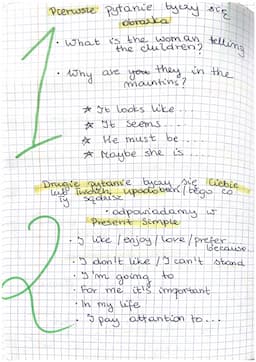 Pierwsze pytanie tyczy się
obrazka
1
• What is the woman telling
the children?
• Why are you they in the
mountins?
★ It looks like ....
★ It seems ....
★ He must be ....
★ Maybe she is ....
Drugie pytanie tyczy się Ciebie
lub twoich upodobań / tego co
ty sądzisz
• odpowiadamy w
Present Simple
2
• I like / enjoy / love / prefer
because...
• I don't like / I can't stand
• I'm going to
• For me it's important
• In my life
• I pay attantion to...